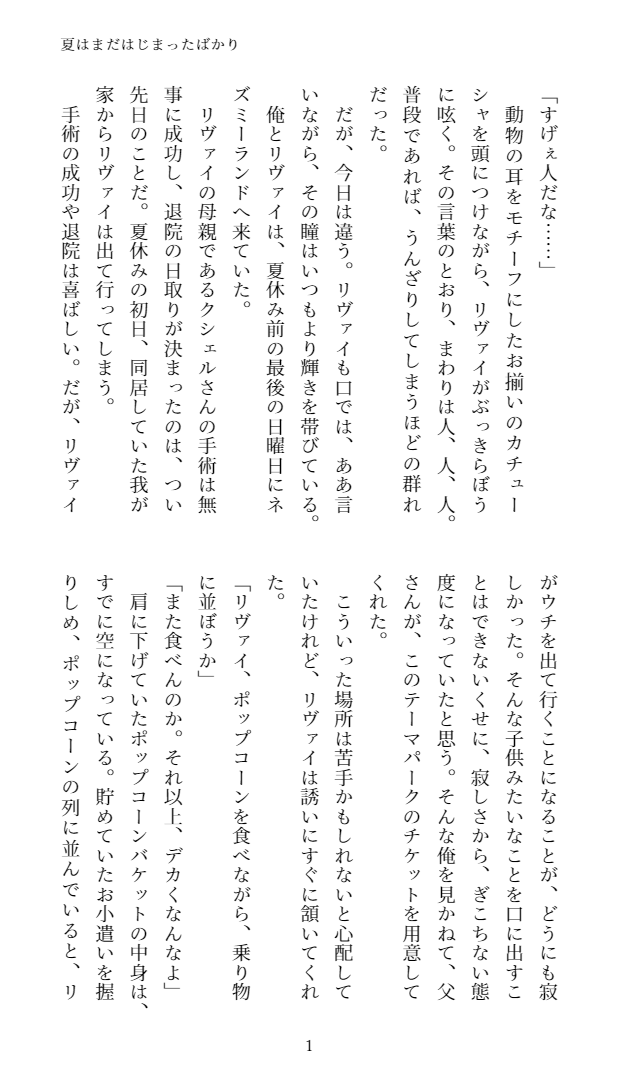 夏はまだはじまったばかり
「すげぇ人だな……」
　動物の耳をモチーフにしたお揃いのカチュー
シャを頭につけながら、リヴァイがぶっきらぼう
に呟く。その言葉のとおり、まわりは人、人、人。
普段であれば、うんざりしてしまうほどの群れ
だった。
　だが、今日は違う。リヴァイも口では、ああ言
いながら、その瞳はいつもより輝きを帯びている。
　俺とリヴァイは、夏休み前の最後の日曜日にネ
ズミーランドへ来ていた。
　リヴァイの母親であるクシェルさんの手術は無
事に成功し、退院の日取りが決まったのは、つい
先日のことだ。夏休みの初日、同居していた我が
家からリヴァイは出て行ってしまう。
　手術の成功や退院は喜ばしい。だが、リヴァイ
がウチを出て行くことになることが、どうにも寂
しかった。そんな子供みたいなことを口に出すこ
とはできないくせに、寂しさから、ぎこちない態
度になっていたと思う。そんな俺を見かねて、父
さんが、このテーマパークのチケットを用意して
くれた。
　こういった場所は苦手かもしれないと心配して
いたけれど、リヴァイは誘いにすぐに頷いてくれ
た。
「リヴァイ、ポップコーンを食べながら、乗り物
に並ぼうか」
「また食べんのか。それ以上、デカくなんなよ」
　肩に下げていたポップコーンバケットの中身は、
すでに空になっている。貯めていたお小遣いを握
りしめ、ポップコーンの列に並んでいると、リ
1